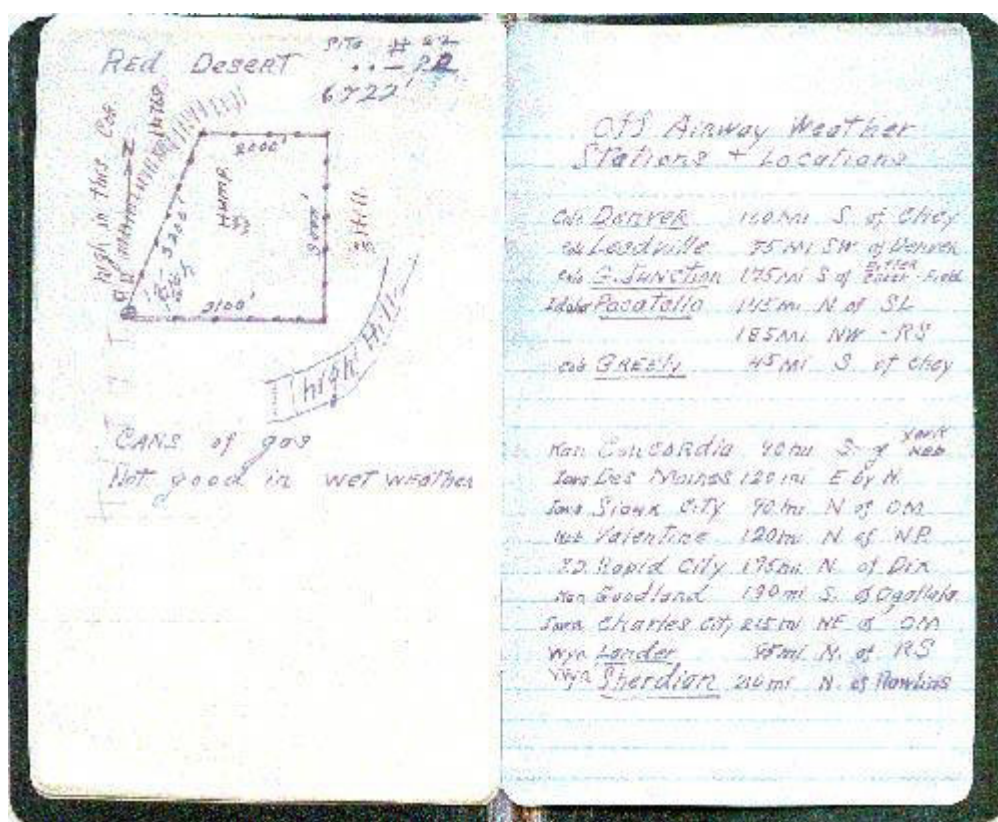 RED DESERT
SITE # 22
. . —
6722'
high in this Cor
N
2000'
3200'
HUMP
3100'
Hill
high Hill
CANS of gas
Not good in WET WEATHER
Off Airway Weather
Stations + Locations
Denver S. of Chey
Leadville 75 mi SW of Denver
G. Junction 175 mi S of Field
Idaho Pocatello 145 mi N of SL
185 mi NW - RS
Greely 45 mi S. of Chey
Kan Concordia 90 mi S. of York Neb
Iowa Des Moines 120 mi E by N.
Iowa Sioux City 90 mi N of OM
Neb Valentine 120 mi N. of NP
Rapid City 175 mi N. of
Kan Goodland 190 mi S. of Ogallala
Iowa Charles City 215 mi NE of OM
Wyo Lander mi N. of RS
Wyo Sherdian 210 mi N. of Rawlins